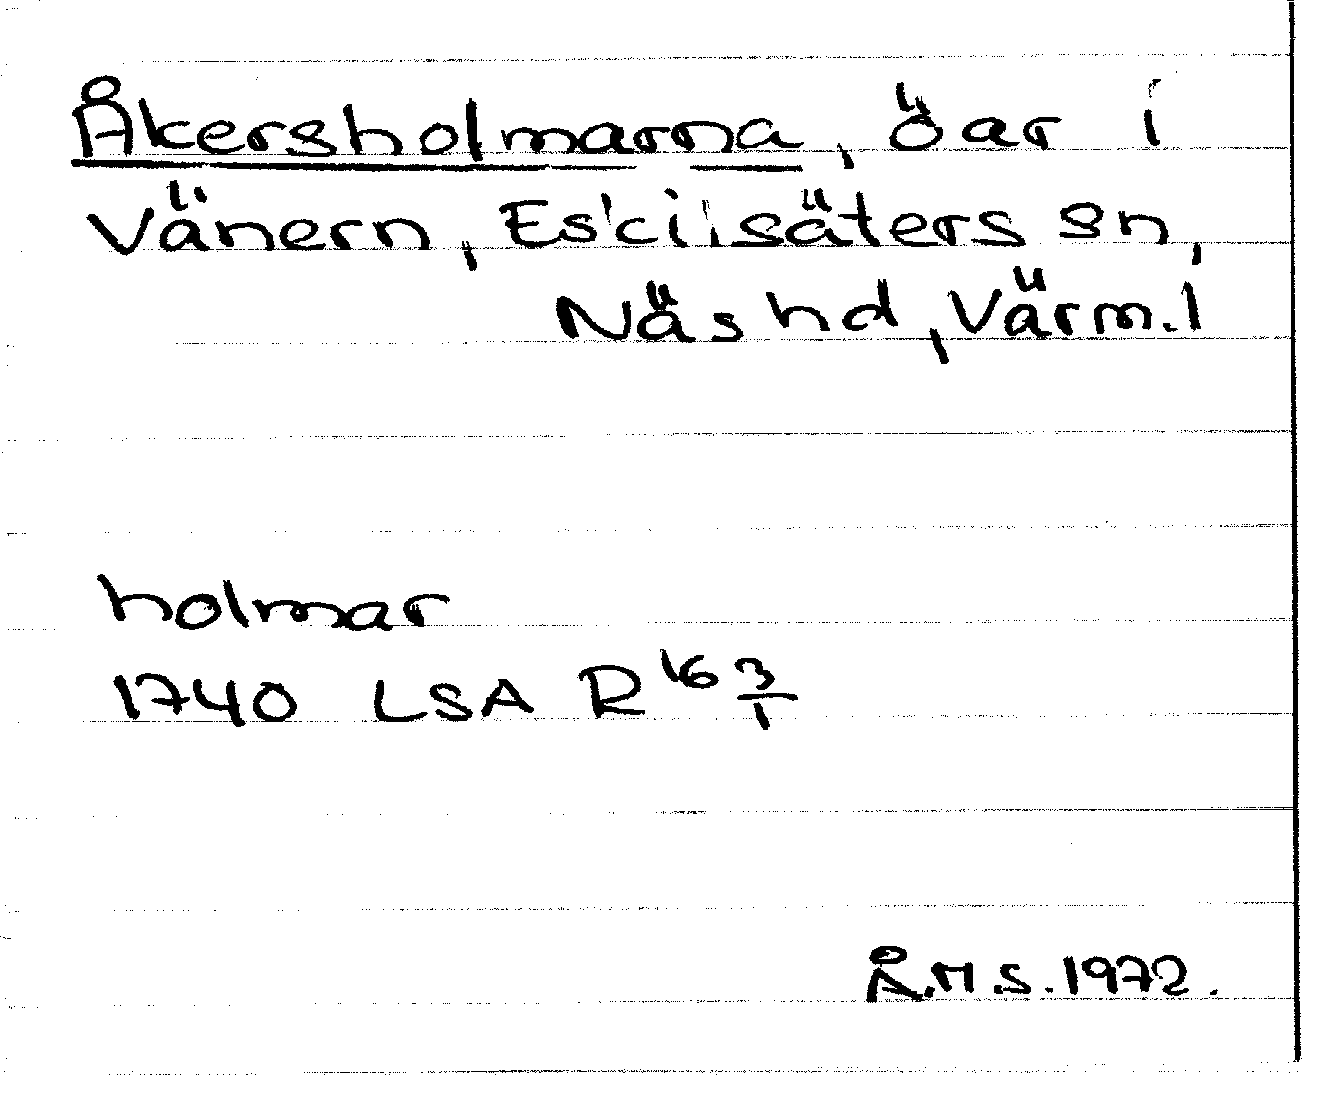 Åkersholmarna, öar i
Vänern, Eskilsäters sn,
Näs hd, Värm. l
holmar
1740 LSA R 16 3/1
Å.M.S. 1972.